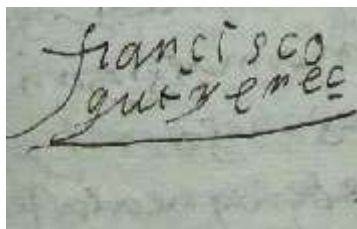 francisco
gutierrec